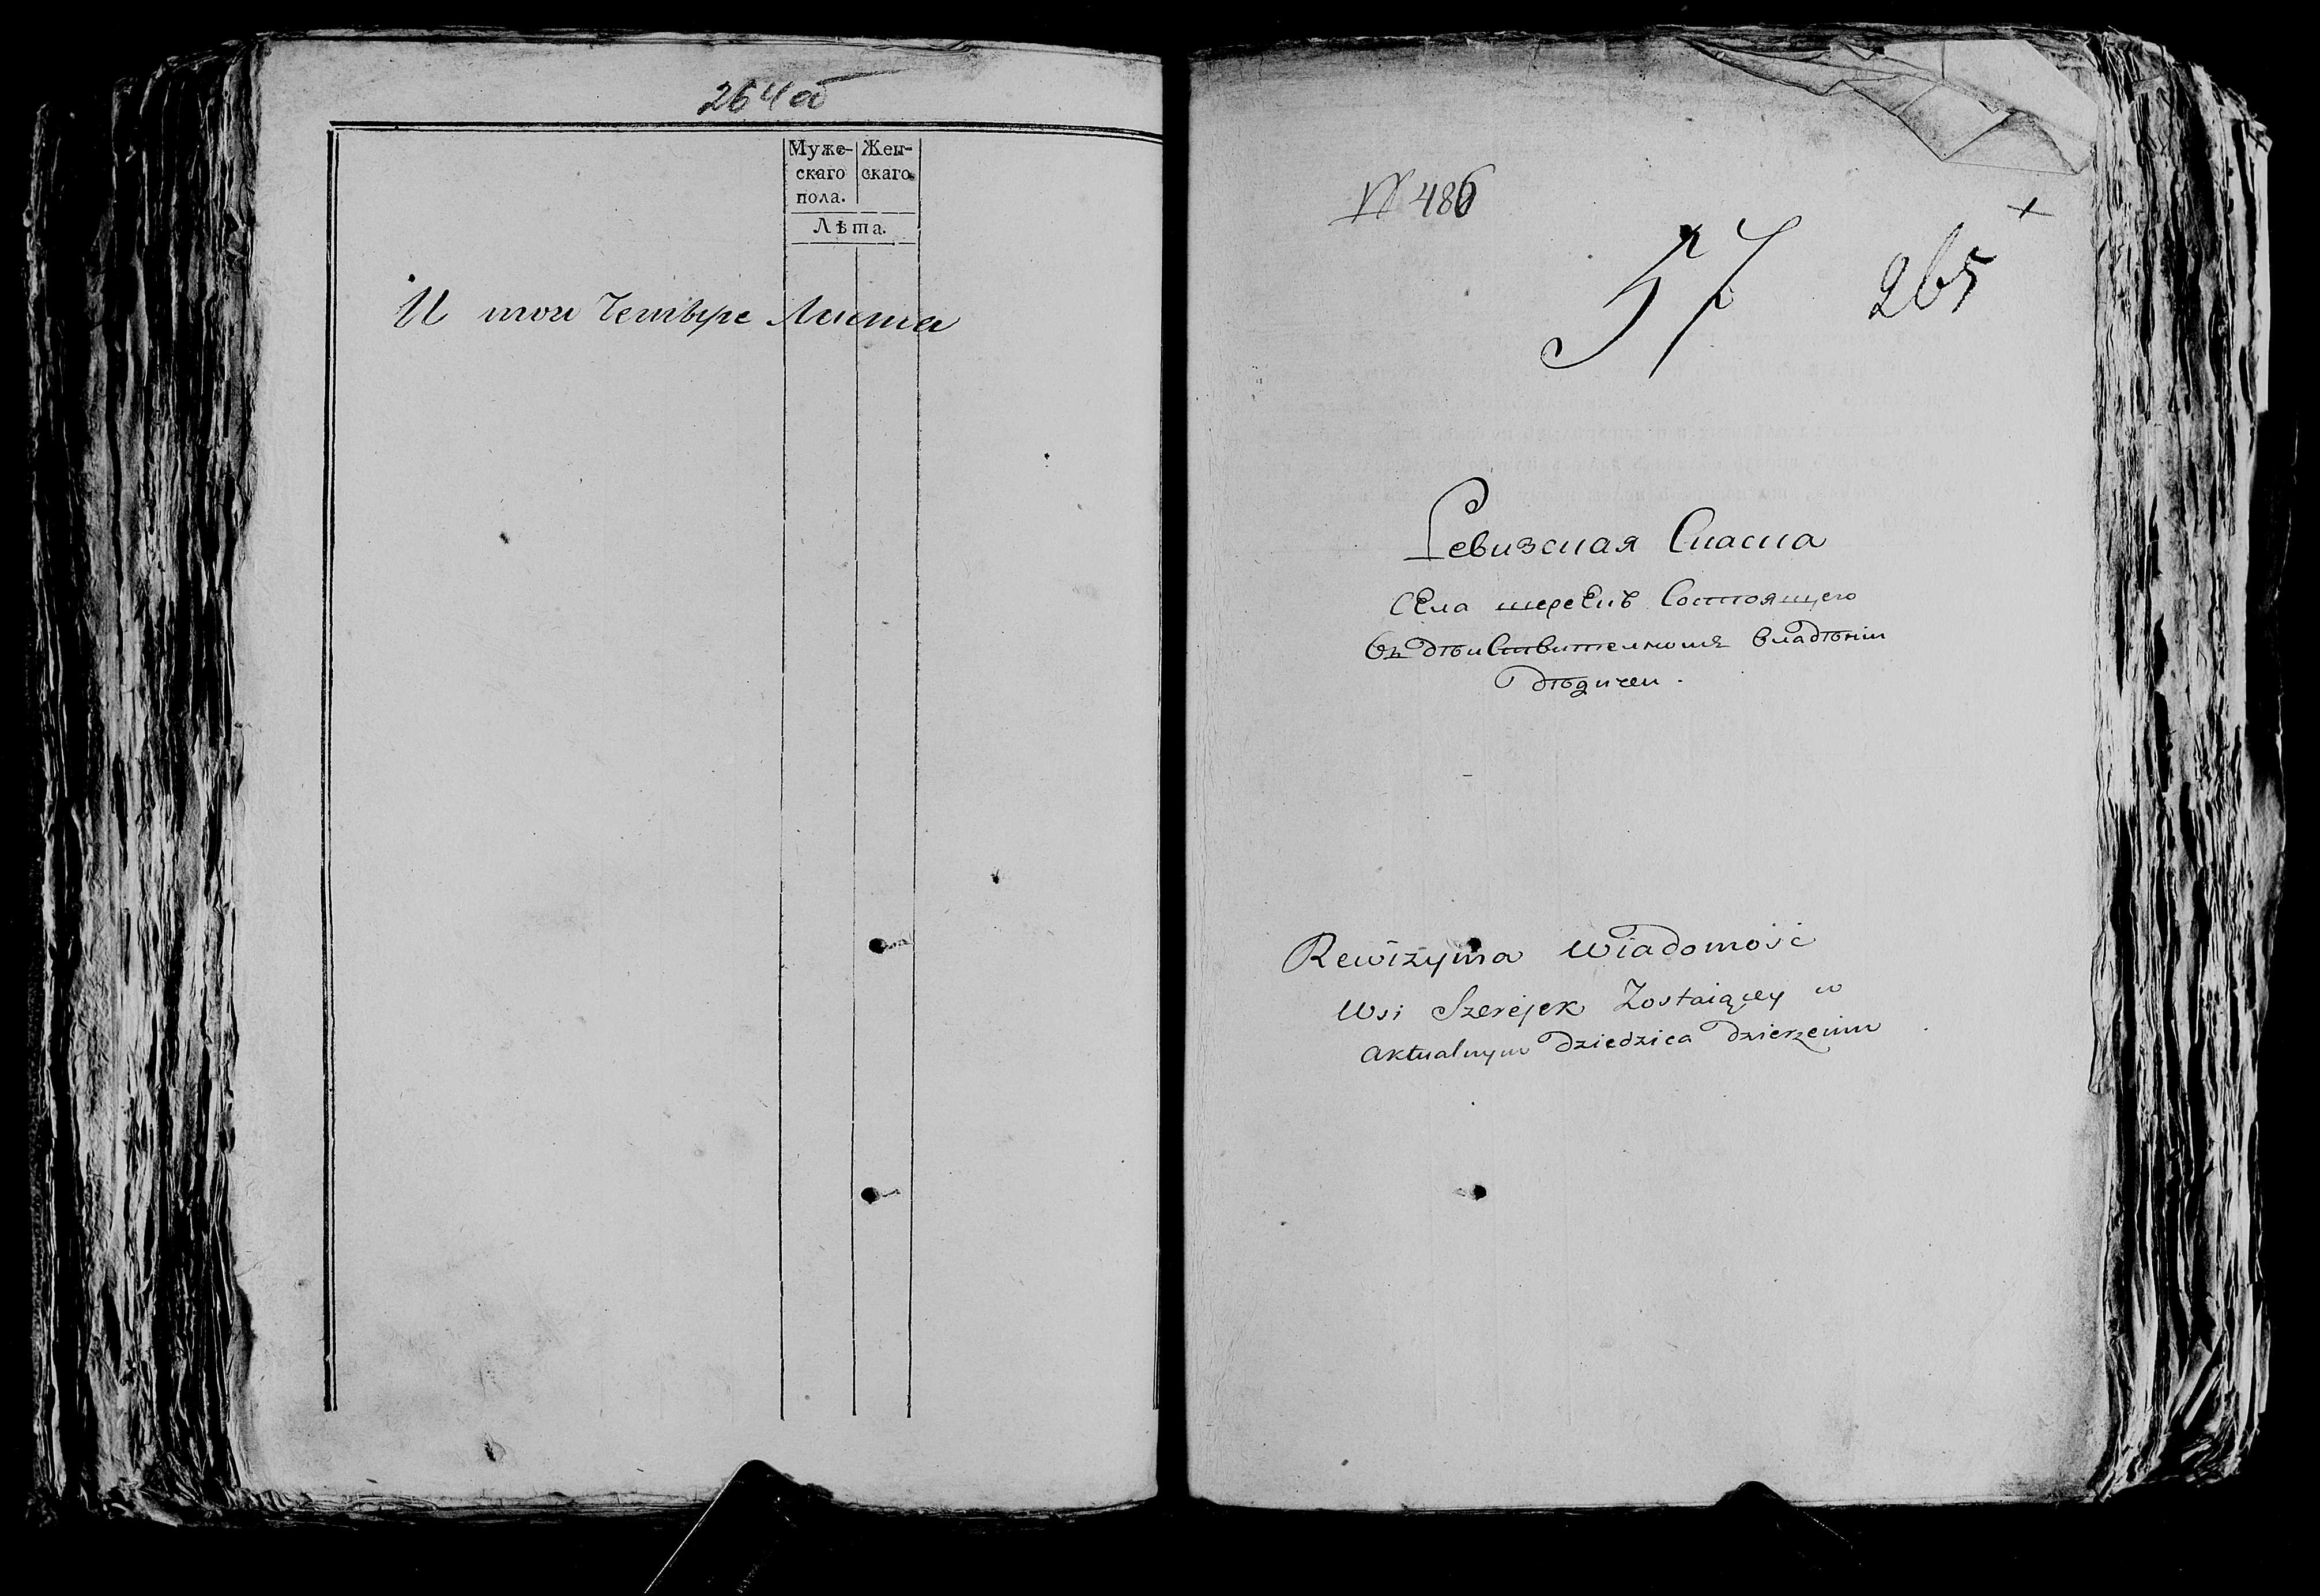 264 об
Муже- Жен-
скаго скаго.
пола.
Лѣта.
И тои Четыре Листа
№ 486
57
265
+
Ревизская Скаска
Села шерекъ Состоящего
Въ дѣиствителномъ владѣнiи
дѣдичеи.
Rewizyina Wiadomość
Wsi Szerejek Zostaiącey w
Aktualnym Dziedzica Dzierzeniu